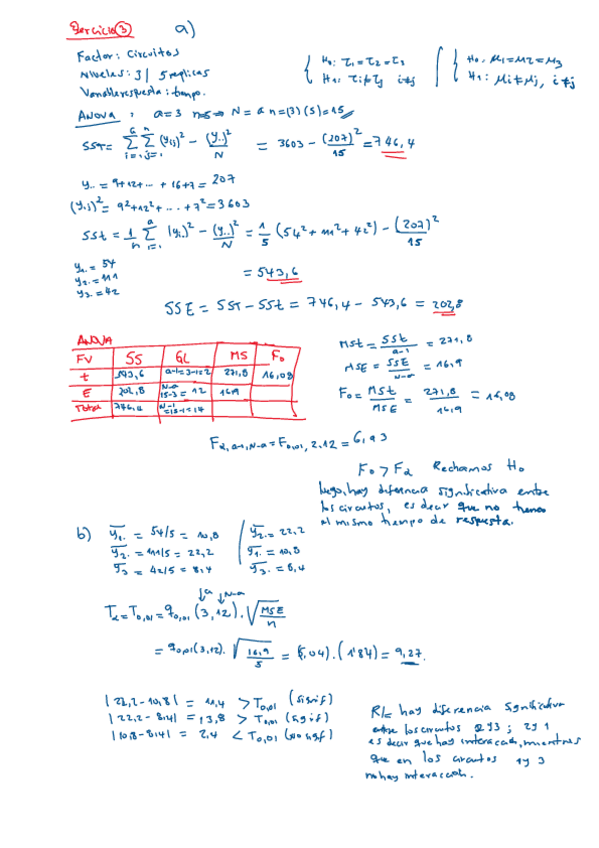 Ejercicio ③ a)
Factor: Circuitos
Niveles: 3 | 5 replicas
Variable respuesta: tiempo.
{ H₀: τ₁=τ₂=τ₃
H₁: τi≠τj i≠j
{ H₀: μ₁=μ2=μ3
H₁: μi≠μj, i≠j
ANOVA, a=3 n=5 ⇒ N = a n=(3)(5)=15
SST= Σ Σ (yij)² - (y..)²/N = 3603 - (207)²/15 = 746,4
y.. = 9+12+ ... + 16+7 = 207
(yij)² = 9²+12²+ ... +7² = 3603
SSt = 1/n Σ (yi.)² - (y..)²/N = 1/5 (54²+111²+42²) - (207)²/15
y1. = 54
y2. = 111
y3. = 42
= 543,6
SSE = SST - SSt = 746,4 - 543,6 = 202,8
ANOVA
FV SS GL MS F₀
t 543,6 a-1=3-1=2 271,8 16,08
E 202,8 N-a 15-3= 12 16,9
Total 746,4 N-1 =15-1=14
MSt = SSt/a-1 = 271,8
MSE = SSE/N-a = 16,9
F₀ = MSt/MSE = 271,8/16,9 = 16,08
Fα, a-1, N-a = F0,01, 2, 12 = 6,93
F₀ > Fα Rechazamos H₀
luego, hay diferencia significativa entre
los circuitos, es decir que no tienen
el mismo tiempo de respuesta.
b) y̅1. = 54/5 = 10,8
y̅2. = 111/5 = 22,2
y̅3 = 42/5 = 8,4
y̅2. = 22,2
y̅1. = 10,8
y̅3. = 8,4
↓a ↓N-a
Tα = T0,01 = q0,01 (3,12) . √MSE/n
= q0,01(3,12). √16,9/5 = (5,04).(1'84) = 9,27.
|22,2-10,8| = 11,4 > T0,01 (signif)
|22,2-8,4| = 13,8 > T0,01 (signif)
|10,8-8,4| = 2,4 < T0,01 (no signf)
R/= hay diferencia significativa
entre los circuitos 2 y 3 ; 2 y 1
es decir que hay interaccion, mientras
que en los circuitos 1 y 3
no hay interaccion.